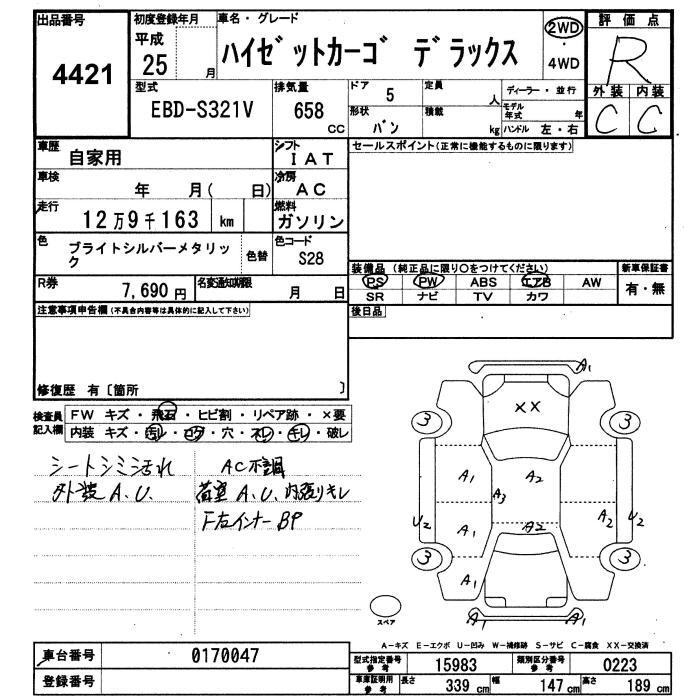 出品番号 初度登録年月 車名・グレード 2WD 評価点
4421 平成 25 月 ハイゼットカーゴ デラックス ・ 4WD R
型式 排気量 ドア 5 定員 人 ディーラー・並行 外装 内装
EBD-S321V 658 CC 形状 バン 積載 kg モデル年式 年 ハンドル 左・右 C C
車歴 自家用 シフト IAT セールスポイント(正常に機能するものに限ります)
車検 年 月( 日) 冷房 AC
走行 12万9千163 km 燃料 ガソリン
色 ブライトシルバーメタリック 色替 色コード S28
装備品 (純正品に限り〇をつけてください) 新車保証書
R券 7,690円 名変通知期限 月 日 PS PW ABS エアB AW 有・無
SR ナビ TV カワ
注意事項申告欄(不具合内容等は具体的に記入して下さい) 後日品
修復歴 有〔箇所 〕
検査員記入欄 FW キズ・飛石・ヒビ割・リペア跡・×要
内装 キズ・汚レ・コゲ・穴・スレ・キレ・破レ
シートシミ汚れ AC不調
外装A.U. 荷室A.U.内張りキレ
F右インナーBP
A1
XX
3 3
A1 A2
A3
U2 A1 A2 A2 U2
3 3
A1
スペア A1 A1
A-キズ E-エクボ U-凹み W-補修跡 S-サビ C-腐食 XX-交換済
車台番号 0170047 型式指定番号 参考 15983 類別区分番号 参考 0223
登録番号 車庫証明用 参考 長さ 339cm 幅 147cm 高さ 189cm